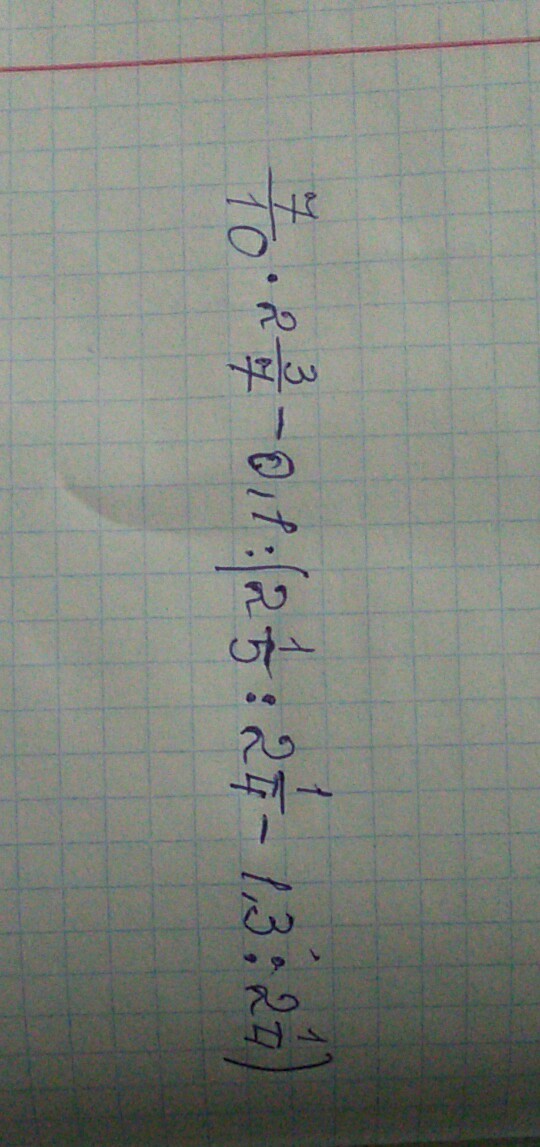 7/10 · 2 3/7 - 0,1 : (2 1/5 : 2 1/4 - 1,3 : 2 1/4)